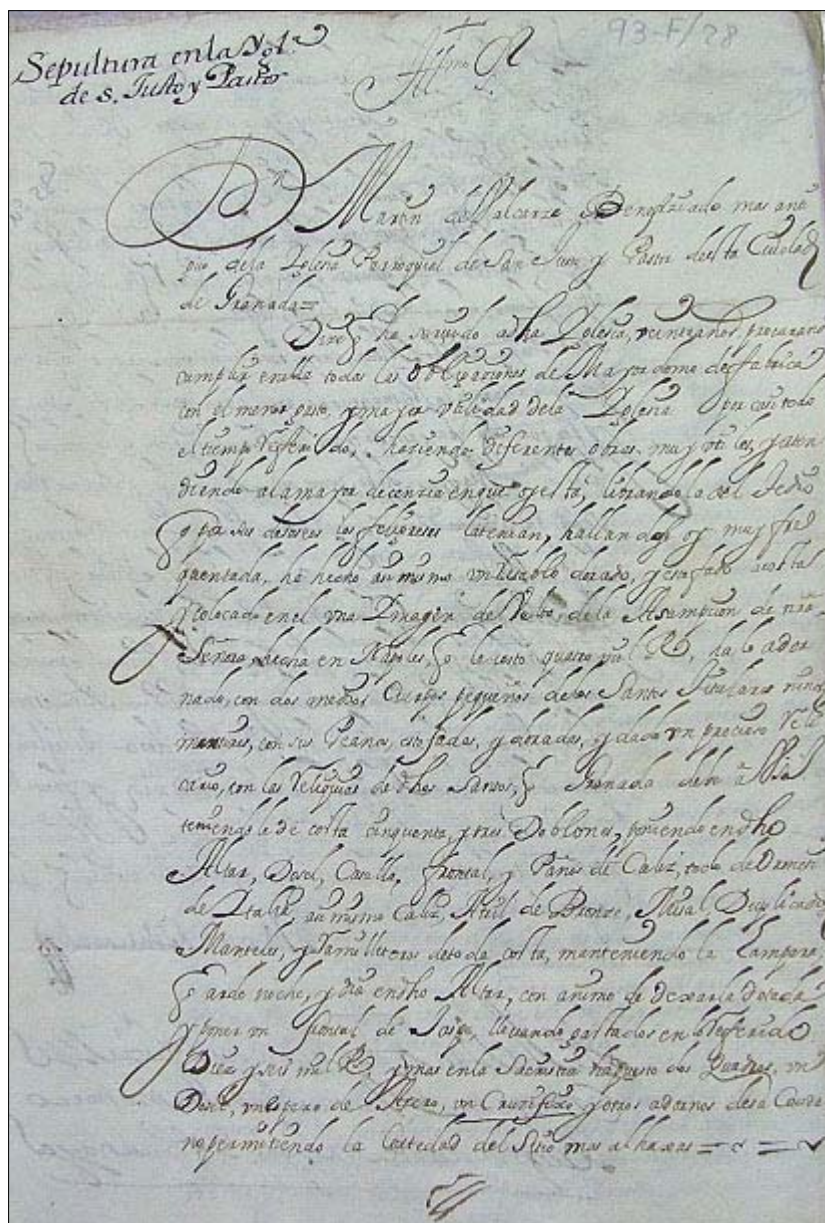 93-F/28
Sepultura en la Ygl.ª
de S. Justo y Pastor
Illmo Sr
Dn Martin de Benefiziado mas anti
guo de la Iglesia Parroquial de San Justo y Pastor desta Ciudad
de Granada =
Dize q ha servido a dha Iglesia, veinte años, procurando
cumplir en ella todas las obligaciones de Mayordomo de fabrica
con el menor gasto, y mayor vtilidad de la Iglesia por casi todo
el tiempo referido, haziendo diferentes obras muy vtiles, y aten
diendo a la mayor decencia en que oy esta, librandola del
q por sus los feligreses la tenian, hallandose oy muy fre
quentada, ha hecho asi mismo vn Retablo dorado, y estofado a costa
y colocado en el vna Imagen de Vulto, de la Assumpcion de nrã
Señora, hecha en Napoles, q le costo quatro mil Rs, halo ador
nado, con dos medios Cuerpos pequeños de los Santos Titulares niños
martires, con sus Peanas, estofadas, y doradas, y dado vn precioso Reli
cario, con las Reliquias de dhos Santos, q
teniendole de costa cinquenta, y tres Doblones, poniendo en dho
Altar, Dosel, Casulla, frontal, y Paños de Caliz, todo de
de Italia, asi mismo Caliz, Atril de Bronze, Misal, Duplicados
Manteles, y de toda costa, manteniendo la Lampara,
q arde noche, y dia en dho Altar, con animo de dexarla dotada
y poner vn frontal de Jaspe, llevando gastados en lo referido
Diez y seis mil Rs, y mas en la Sacristia ha puesto dos Quadros, vn
Dosel, vn espejo de vn Crucifixo y otros adornos
no permitiendo la Cortedad del Sitio mas alhaxas =